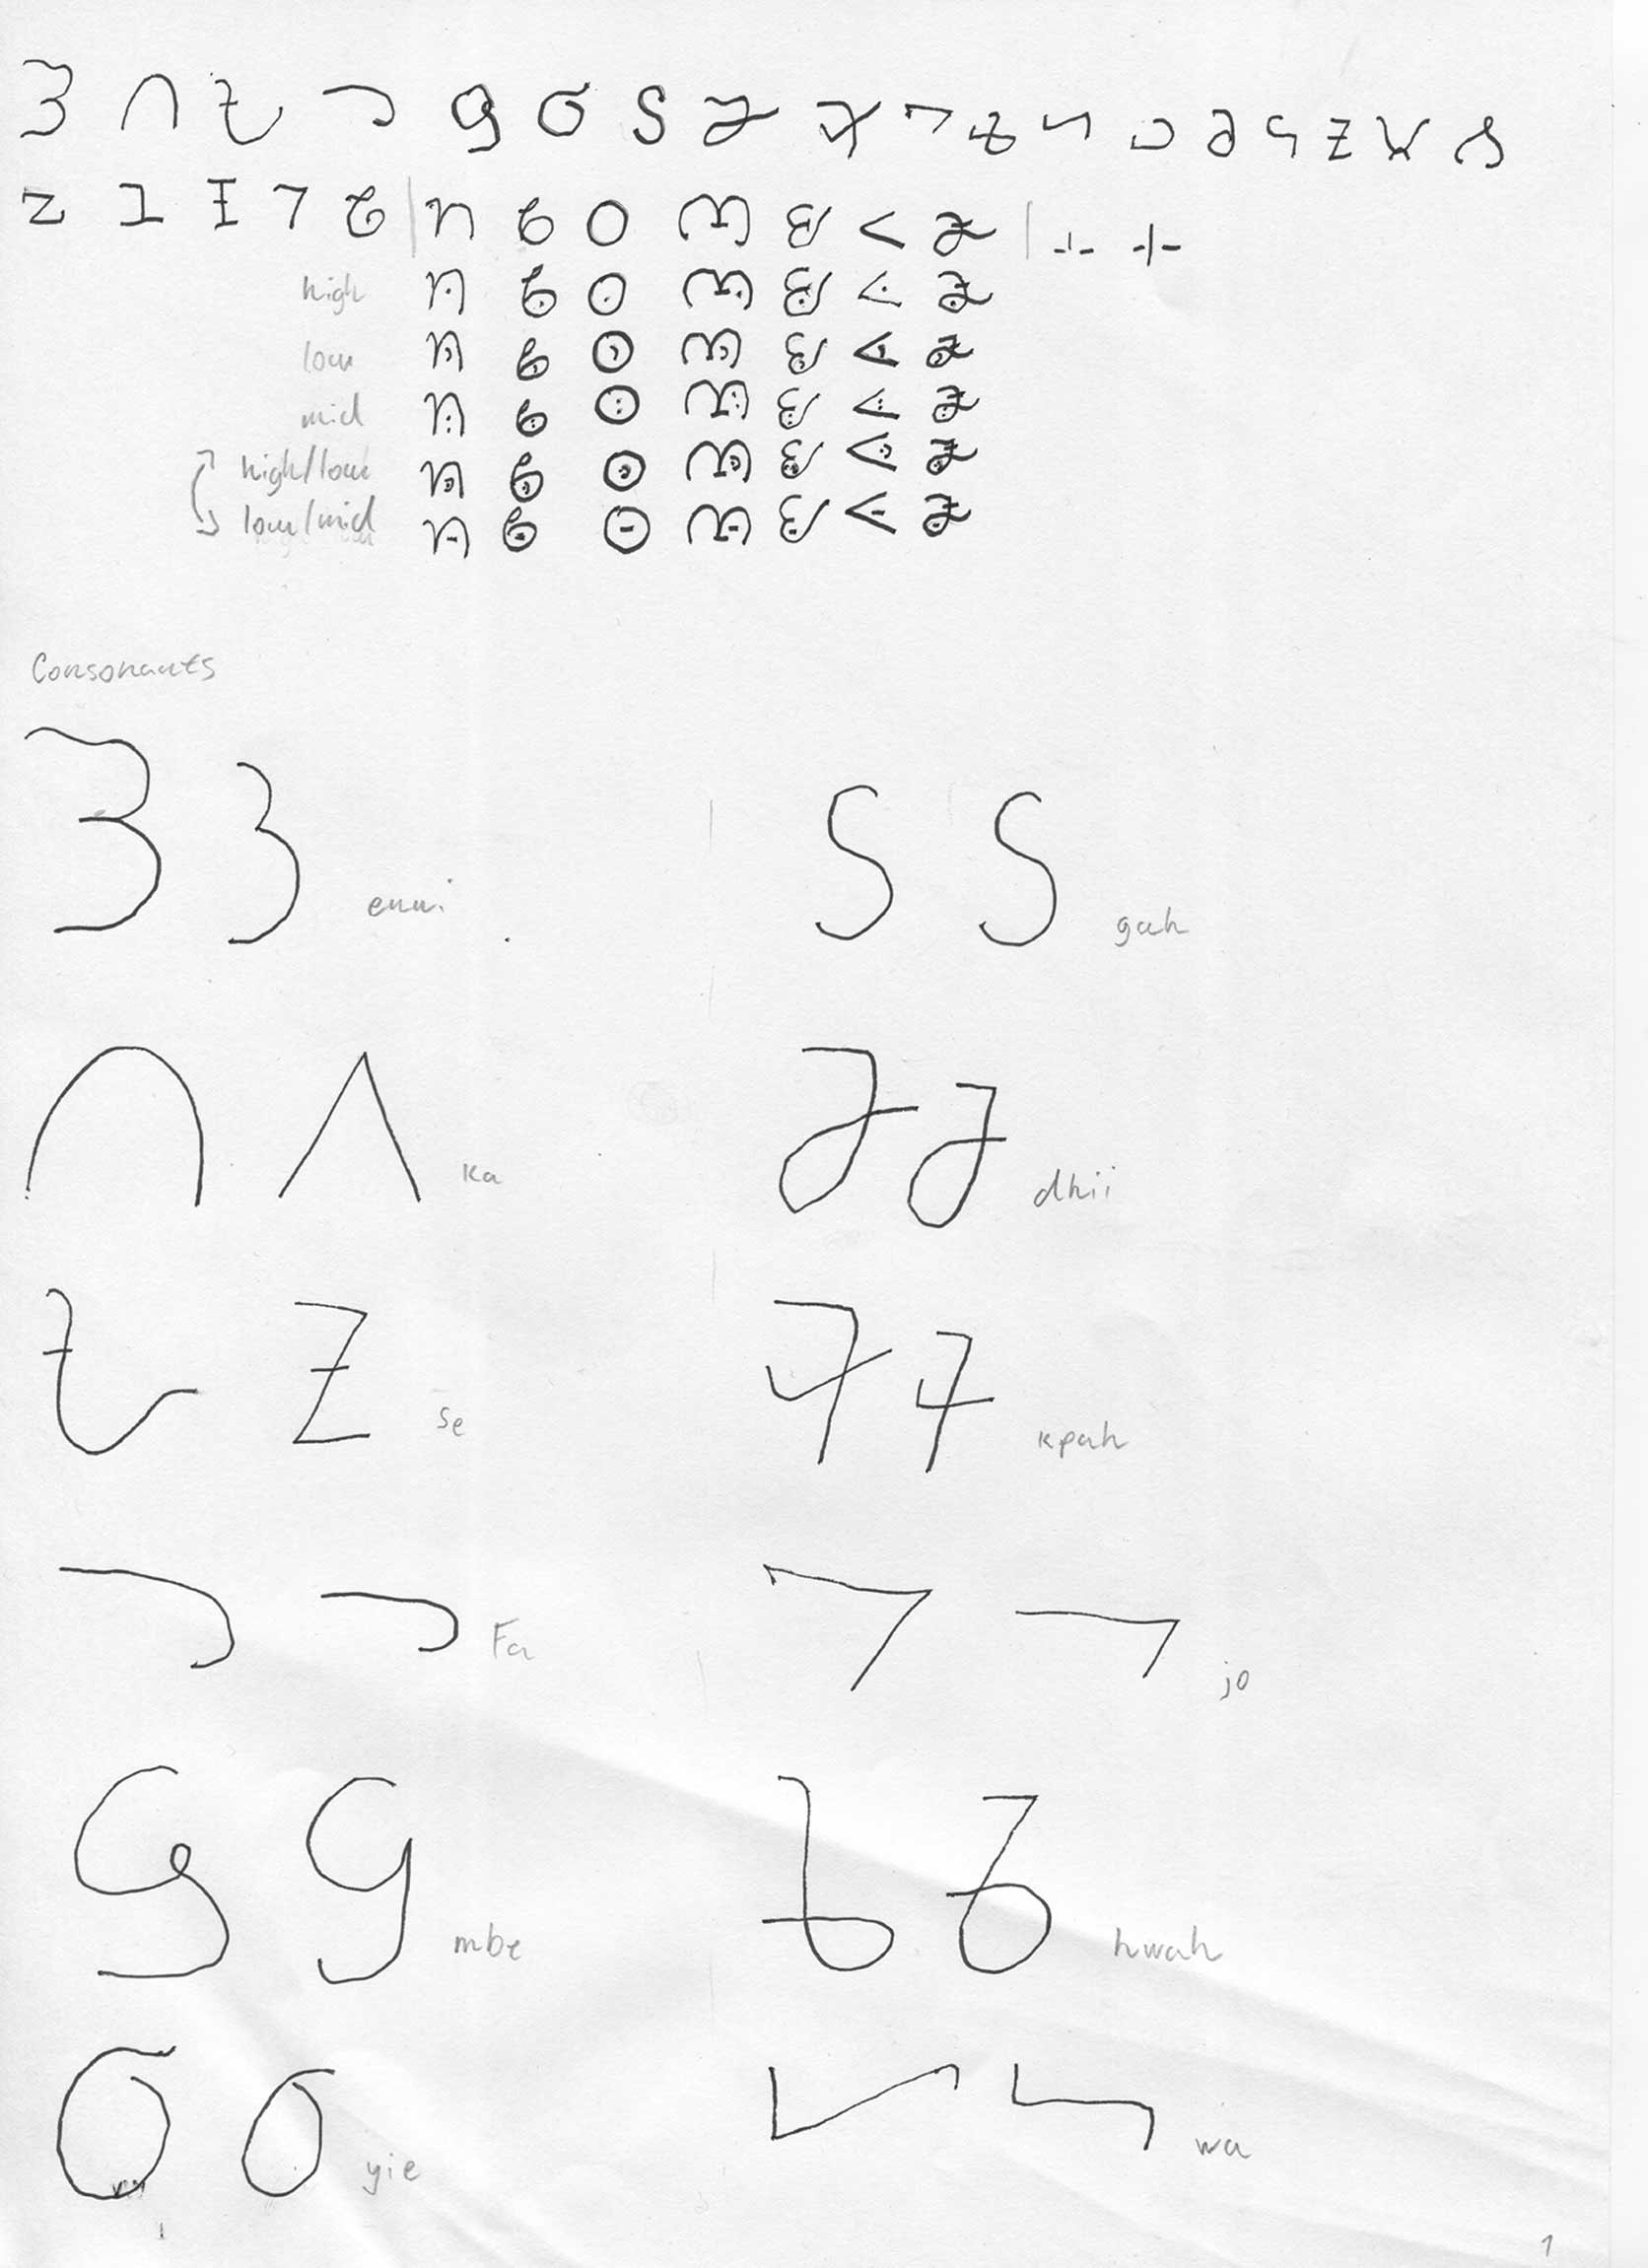 𖫐 𖫑 𖫒 𖫓 𖫔 𖫕 𖫖 𖫗 𖫘 𖫙 𖫚 𖫛 𖫜 𖫝 𖫞 𖫟 𖫠 𖫡
𖫢 𖫣 𖫤 𖫥 𖫦 | 𖫧 𖫨 𖫩 𖫪 𖫫 𖫬 𖫭 |
high 𖫧𖫰 𖫨𖫰 𖫩𖫰 𖫪𖫰 𖫫𖫰 𖫬𖫰 𖫭𖫰
low 𖫧𖫱 𖫨𖫱 𖫩𖫱 𖫪𖫱 𖫫𖫱 𖫬𖫱 𖫭𖫱
mid 𖫧𖫲 𖫨𖫲 𖫩𖫲 𖫪𖫲 𖫫𖫲 𖫬𖫲 𖫭𖫲
high/low 𖫧𖫴 𖫨𖫴 𖫩𖫴 𖫪𖫴 𖫫𖫴 𖫬𖫴 𖫭𖫴
low/mid 𖫧𖫳 𖫨𖫳 𖫩𖫳 𖫪𖫳 𖫫𖫳 𖫬𖫳 𖫭𖫳
Consonants
𖫐 𖫐 enni
𖫑 𖫑 ka
𖫒 𖫒 se
𖫓 𖫓 Fa
𖫔 𖫔 mbe
𖫕 𖫕 yie
𖫖 𖫖 gah
𖫗 𖫗 dhii
𖫘 𖫘 kpah
𖫙 𖫙 jo
𖫚 𖫚 hwah
𖫛 𖫛 wa
1